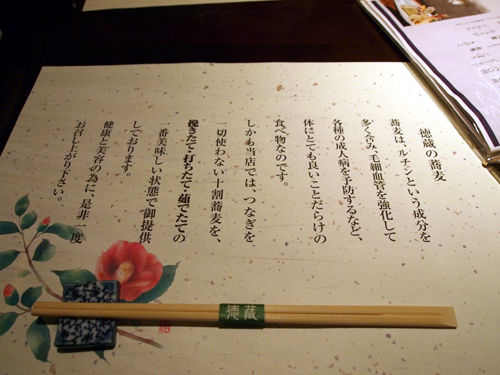 徳蔵の蕎麦
蕎麦は、ルチンという成分を
多く含み、毛細血管を強化して
各種の成人病を予防するなど、
体にとても良いことだらけの
食べ物なのです。
しかも当店では、つなぎを
一切使わない十割蕎麦を、
挽きたて・打ちたて・茹でたての
一番美味しい状態で御提供
しております。
健康と美容の為に、是非一度
お召し上がり下さい。
德蔵